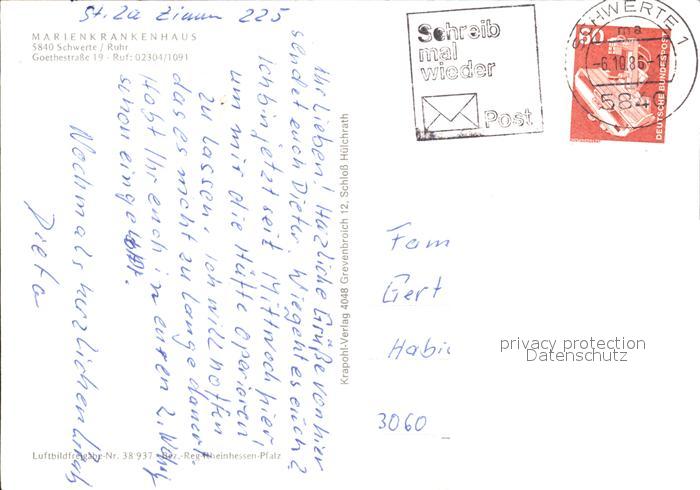 St. 2a Zimm 225
MARIENKRANKENHAUS
5840 Schwerte / Ruhr
Goethestraße 19 - Ruf: 02304/1091
Ihr Lieben! Herzliche Grüße von hier
sendet euch Dieter. Wie geht es euch?
Ich bin jetzt seit Mittwoch hier,
um mir die Hüfte operieren
zu lassen, ich will hoffen
das es nicht zu lange dauert.
Habt Ihr euch in euren 2. Wohn
schon eingelebt.
Nochmals herzlichen Gruß
Dieter
Luftbildfreigabe-Nr. 38'937 - Bez.-Reg. Rheinhessen-Pfalz
Krapohl-Verlag 4048 Grevenbroich 12, Schloß Hülchrath
Schreib
mal
wieder
Post
SCHWERTE 1
ma
-6.10.86-
5840
80
DEUTSCHE BUNDESPOST
Fam
Gert
Habic
3060
privacy protection
Datenschutz